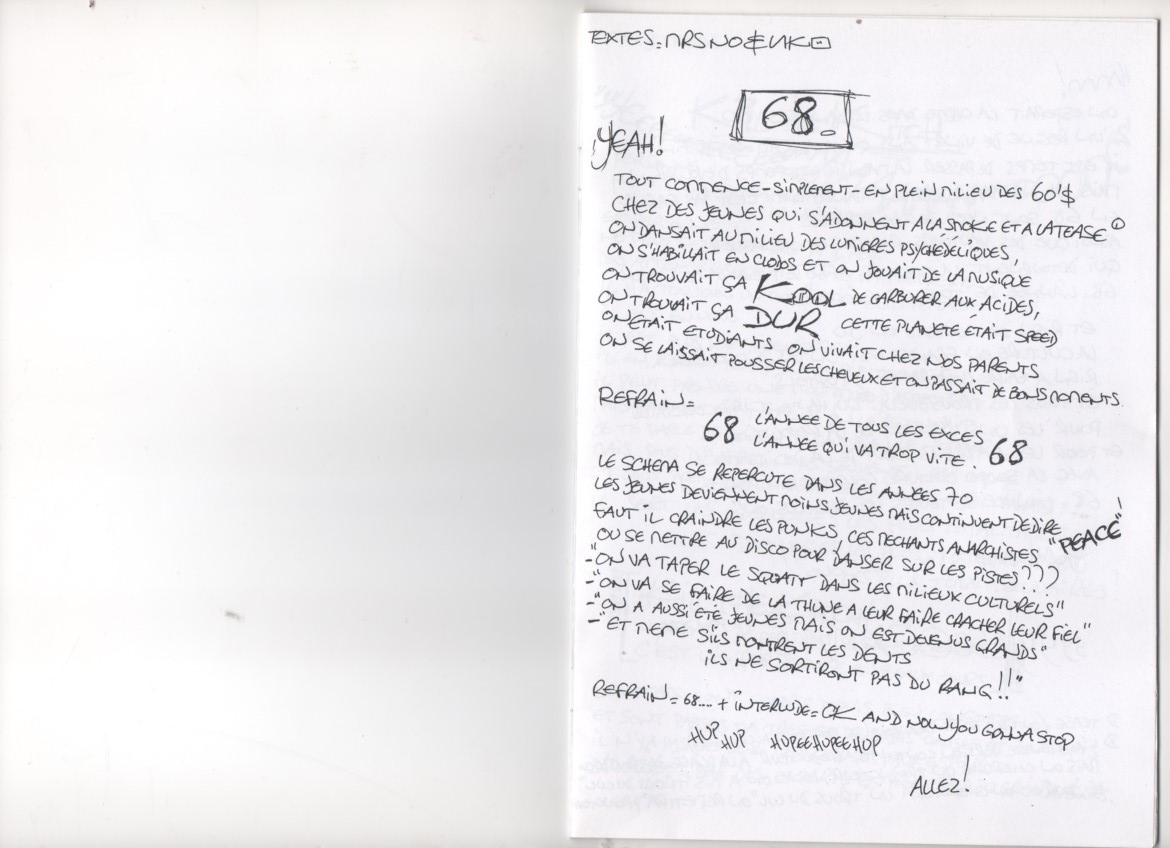 TEXTES: MRS NO & NKO
68.
YEAH!
TOUT COMMENCE - SIMPLEMENT - EN PLEIN MILIEU DES 60'$
CHEZ DES JEUNES QUI S'ADONNENT A LA SMOKE ET A LA TEASE ①
ON DANSAIT AU MILIEU DES LUMIERES PSYCHÉDÉLIQUES,
ON S'HABILLAIT EN CLODOS ET ON JOUAIT DE LA MUSIQUE
ON TROUVAIT ÇA KOOL DE CARBURER AUX ACIDES,
ON TROUVAIT ÇA DUR CETTE PLANETE ÉTAIT SPEED
ON ETAIT ETUDIANTS ON VIVAIT CHEZ NOS PARENTS
ON SE LAISSAIT POUSSER LES CHEVEUX ET ON PASSAIT DE BONS MOMENTS.
REFRAIN =
68 L'ANNEE DE TOUS LES EXCES
L'ANNEE QUI VA TROP VITE. 68
LE SCHEMA SE REPERCUTE DANS LES ANNEES 70
LES JEUNES DEVIENNENT MOINS JEUNES MAIS CONTINUENT DE DIRE "PEACE"!
FAUT IL CRAINDRE LES PUNKS, CES MECHANTS ANARCHISTES
OU SE METTRE AU DISCO POUR DANSER SUR LES PISTES???
-"ON VA TAPER LE SQUATT DANS LES MILIEUX CULTURELS"
-"ON VA SE FAIRE DE LA THUNE A LEUR FAIRE CRACHER LEUR FIEL"
-"ON A AUSSI ÉTÉ JEUNES MAIS ON EST DEVENUS GRANDS"
-"ET MEME S'ILS MONTRENT LES DENTS
ILS NE SORTIRONT PAS DU RANG!!"
REFRAIN = 68.... + INTERLUDE = OK AND NOW YOU GONNA STOP
HUP HUP HUPEEHUPEEHUP
ALLEZ!